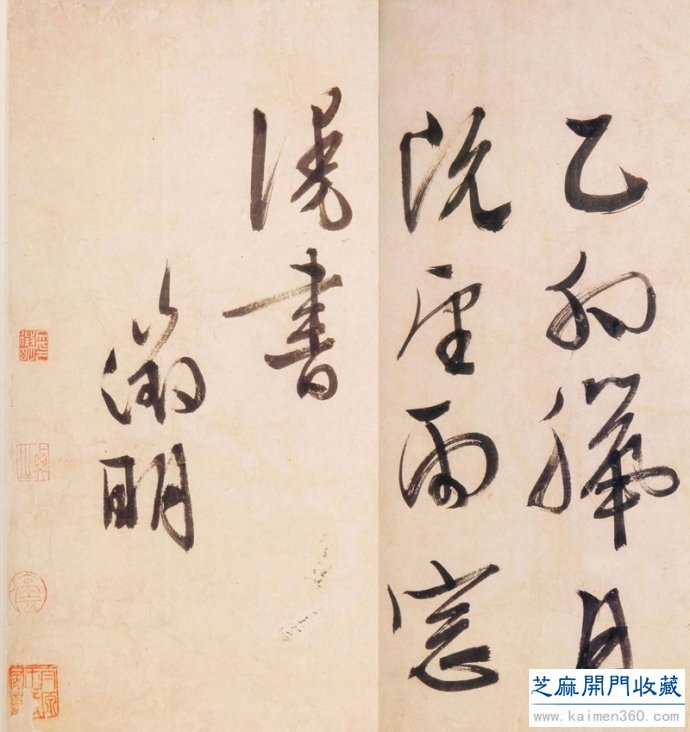 乙卯臘月
既望雨窓
漫書
徵明
芝麻開門收藏
www.kaimen360.com